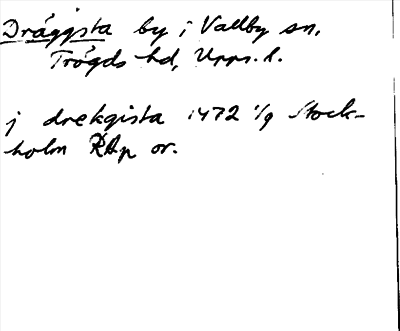 Dräggsta by i Vallby sn,
Trögds hd, Upps. l.
j drekgista 1472 1/9 Stock-
holm RAp or.